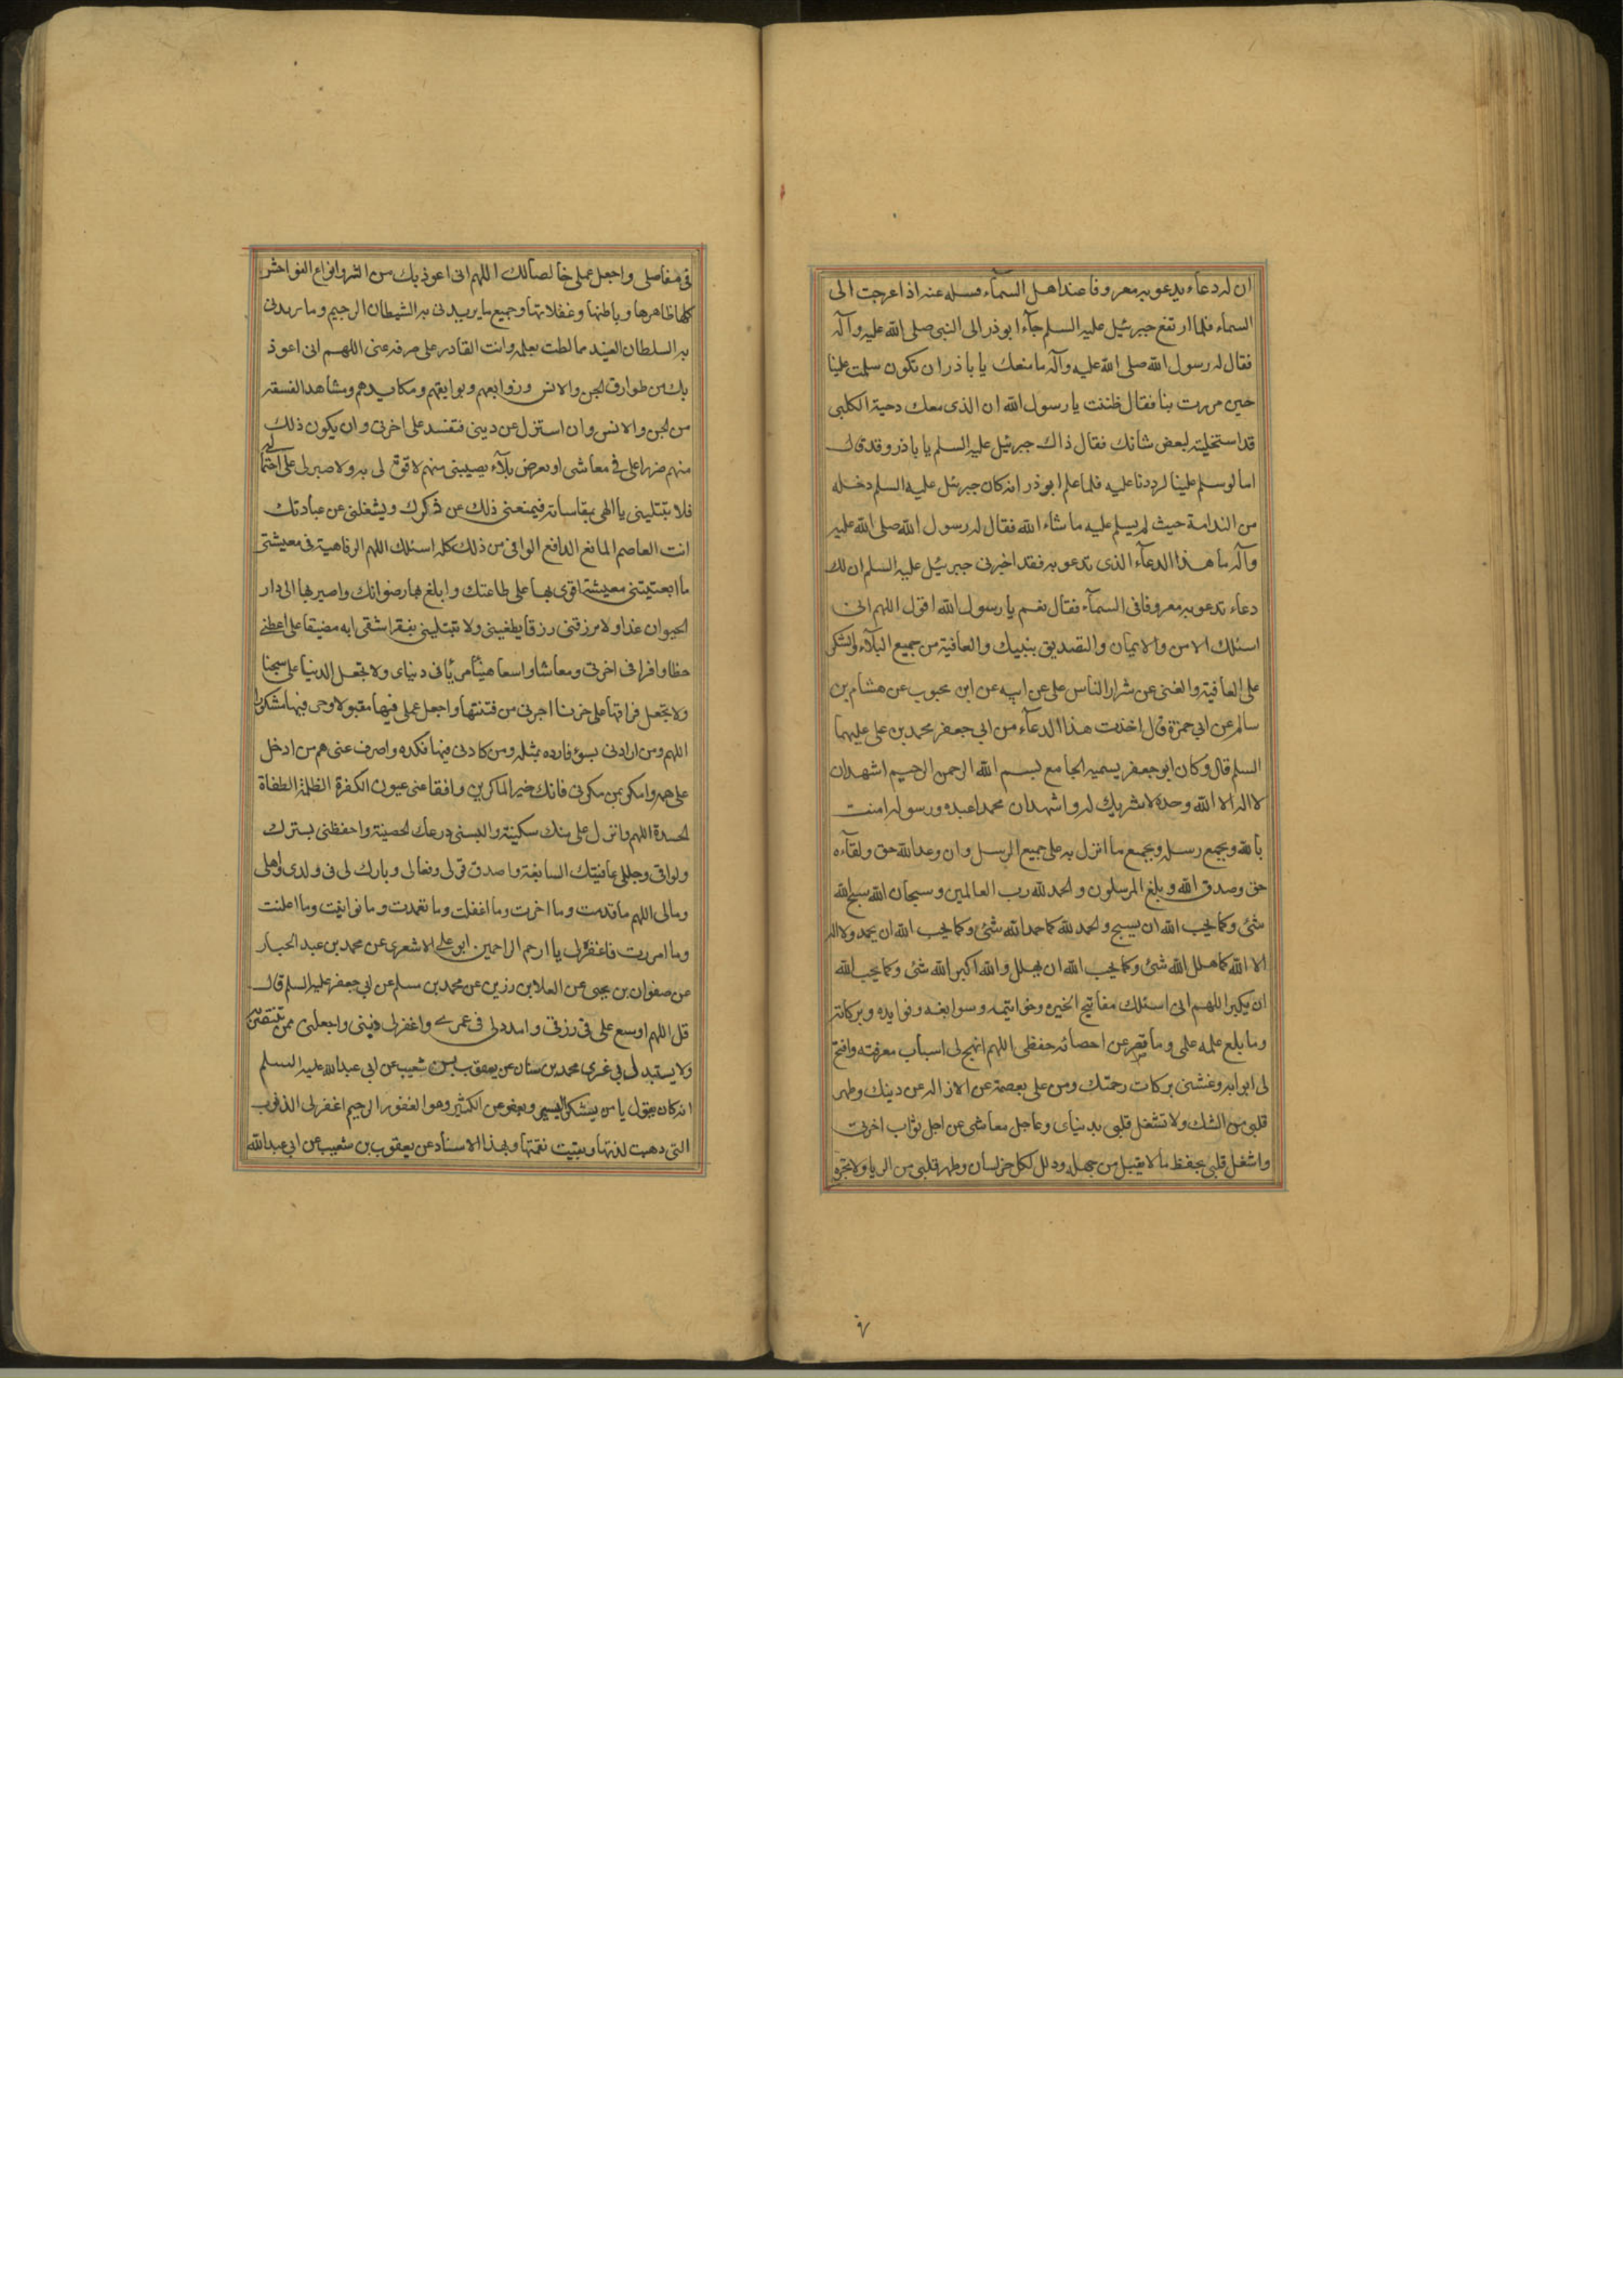 ان له دعاء يدعو به معروفا عند اهل السمآء فسله عنه اذا عرجت الى
السماء فلما ارتفع جبرئيل عليه السلم جآء ابوذر الى النبى صلى الله عليه وآله
فقال له رسول الله صلى الله عليه وآله ما منعك يا باذر ان تكون سلمت علينا
حين مررت بنا فقال ظننت يا رسول الله ان الذى معك دحية الكلبى
قد استخليته لبعض شانك فقال ذاك جبرئيل عليه السلم يا باذر وقد قال
اما لو سلم علينا لرددنا عليه فلما علم ابوذر انه كان جبرئيل عليه السلم دخله
من الندامة حيث لم يسلم عليه ما شاء الله فقال له رسول الله صلى الله عليه
وآله ما هذا الدعآء الذى تدعو به فقد اخبرنى جبرئيل عليه السلم ان لك
دعاء تدعو به معروفا فى السمآء فقال نعم يا رسول الله اقول اللهم انى
اسئلك الامن والايمان والتصديق بنبيك والعافية من جميع البلآء والشكر
على العافية والغنى عن شرار الناس على عن ابيه عن ابن محبوب عن هشام بن
سالم عن ابي حمزة قال اخذت هذا الدعآء من ابي جعفر محمد بن على عليهما
السلم قال وكان ابو جعفر يسميه الجامع بسم الله الرحمن الرحيم اشهد ان
لا اله الا الله وحده لا شريك له واشهد ان محمدا عبده ورسوله امنت
بالله وبجميع رسله وبجميع ما انزل به على جميع الرسل وان وعد الله حق ولقآءه
حق وصدق الله وبلغ المرسلون والحمد لله رب العالمين وسبحان الله سبح الله
شئ وكما يحب الله ان يسبح والحمد لله كما حمد الله شئ وكما يحب الله ان يحمد ولا اله
الا الله كما هلل الله شئ وكما يحب الله ان يهلل والله اكبر الله شئ وكما يحب الله
ان يكبر اللهم انى اسئلك مفاتيح الخير وخواتيمه وسوابغه وفوايده وبركاته
وما بلغ علمه علمى وما قصر عن احصائه حفظى اللهم انهج لى اسباب معرفته وافتح
لى ابوابه وغشنى بركات رحمتك ومن على بعصمة عن الازاله عن دينك وطهر
قلبى من الشك ولا تشغل قلبى بدنياى وعاجل معاشى عن اجل ثواب اخرتى
واشغل قلبى بحفظ ما لا يقبل من جهله وذلل لكل خير لسان وطهر قلبى من الريا ولا تجره
فى مفاصلى واجعل عملى خالصا لك اللهم انى اعوذ بك من الشر وانواع الفواحش
كلها ظاهرها وباطنها وغفلاتها وجميع ما يريدنى به الشيطان الرجيم وما يريدنى
به السلطان العنيد مما لطت بعلمه وانت القادر على صرفه عنى اللهم انى اعوذ
بك من طوارق الجن والانس وزوابعهم وبوايقهم ومكايدهم ومشاهد الفسقه
من الجن والانس وان استزل عن دينى فتفسد على اخرتى وان يكون ذلك
منهم ضررا على فى معاشى او بعرض بلآء يصيبنى منهم لا قوة لى به ولا صبر لى على احتماله
فلا تبتلينى يا الهى بمقاساته فيمنعنى ذلك عن ذكرك ويشغلنى عن عبادتك
انت العاصم المانع الدافع الواقى من ذلك كله اسئلك اللهم الرفاهية فى معيشتى
ما ابقيتنى معيشة اقوى بها على طاعتك وابلغ بها رضوانك واصير بها الى دار
الحيوان غدا ولا ترزقنى رزقا يطغينى ولا تبتلينى بفقر اشقى به مضيقا على اعطنى
حظا وافرا فى اخرتى ومعاشا واسعا هنيئا مريئا فى دنياى ولا تجعل الدنيا على سجنا
ولا تجعل فراقها على حزنا اجرنى من فتنتها واجعل عملى فيها مقبولا وسعى فيها مشكورا
اللهم ومن ارادنى بسوء فارده بمثله ومن كادنى فيها فكده واصرف عنى هم من ادخل
على همه وامكر بمن مكر بى فانك خير الماكرين وافقا عنى عيون الكفرة الظلمة الطغاة
الحسدة اللهم وانزل على منك سكينة والبسنى درعك الحصينة واحفظنى بسترك
الواقى وجللنى عافيتك السابغة واصدق قولى وفعالى وبارك لى فى ولدى واهلى
ومالى اللهم ما قدمت وما اخرت وما اغفلت وما تعمدت وما توانيت وما اعلنت
وما اسررت فاغفره لى يا ارحم الراحمين ابو على الاشعرى عن محمد بن عبد الجبار
عن صفوان بن يحيى عن العلا بن رزين عن محمد بن مسلم عن ابى جعفر عليه السلم قال
قل اللهم اوسع على فى رزقى وامدد لى فى عمرى واغفر لى ذنبى واجعلنى ممن تنتصر به
ولا يستبدل بى غيرى محمد بن سنان عن يعقوب بن شعيب عن ابى عبد الله عليه السلم
انه كان يقول يا من يشكر اليسير ويعفو عن الكثير وهو الغفور الرحيم اغفر لى الذنوب
التى ذهبت لذتها وبقيت نقمتها وبهذا الاسناد عن يعقوب بن شعيب عن ابى عبد الله